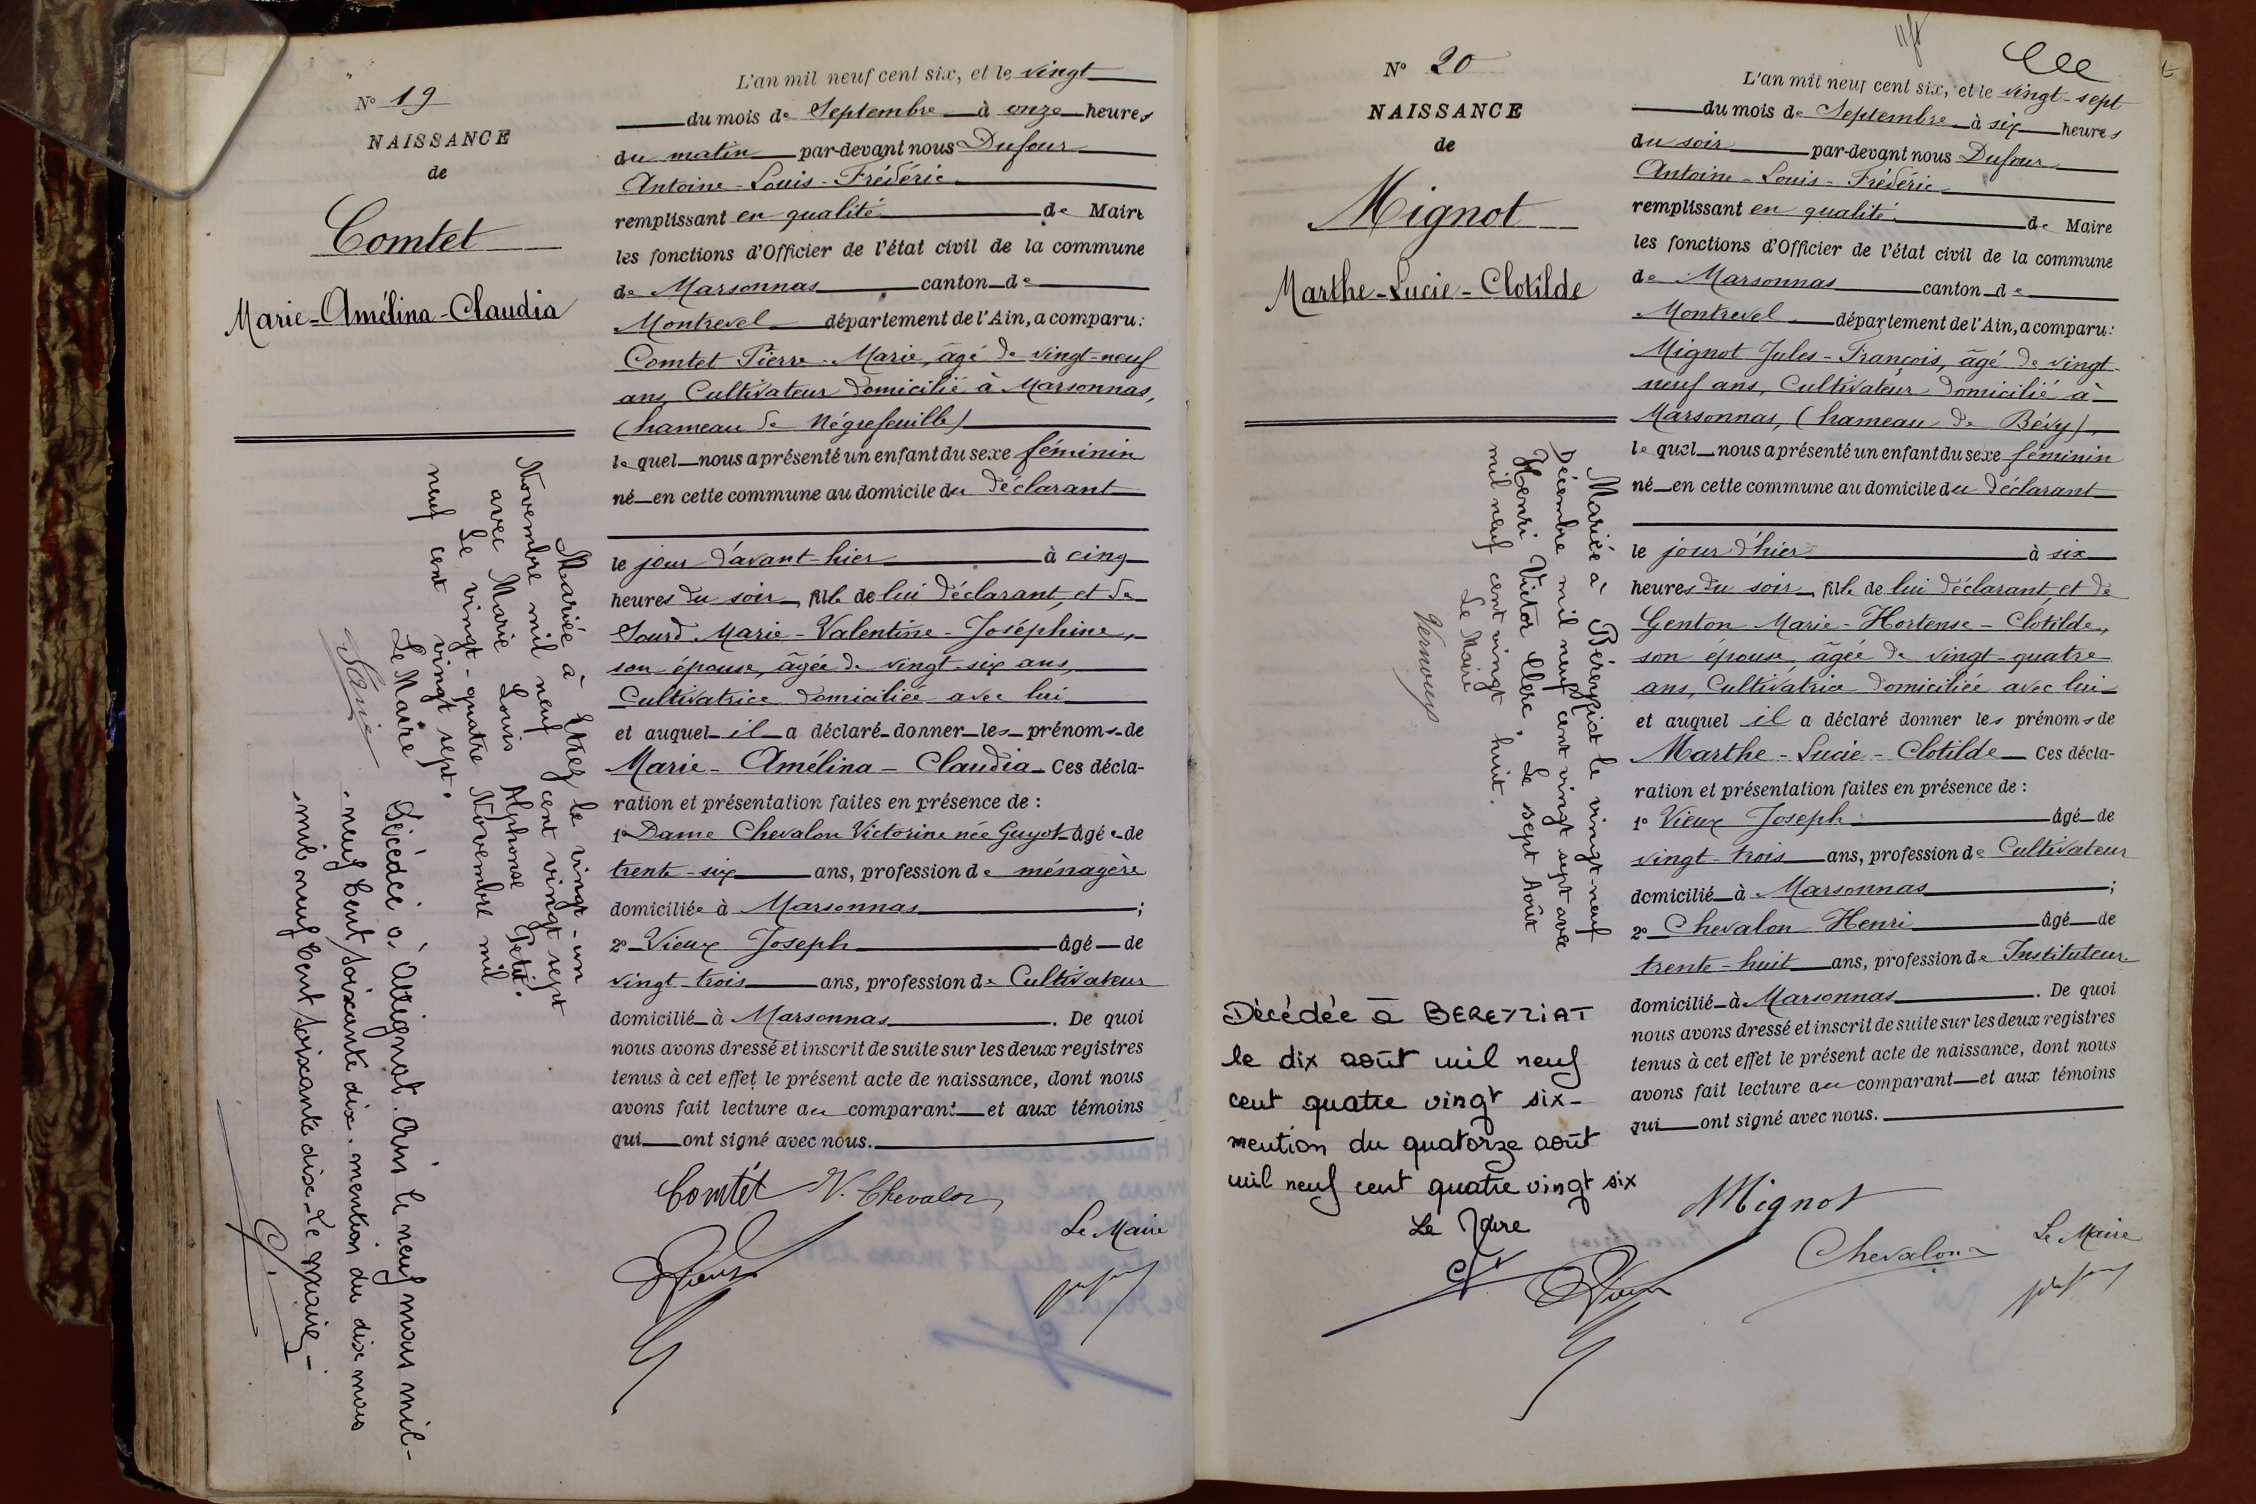 Nº 19
NAISSANCE
de
Comtet
Marie-Amélina-Claudia
L'an mil neuf cent six, et le vingt
du mois de Septembre à onze heures
du matin par-devant nous Dufour
Antoine-Louis-Frédéric
remplissant en qualité de Maire
les fonctions d'Officier de l'état civil de la commune
de Marsonnas canton de
Montrevel département de l'Ain, a comparu:
Comtet Pierre-Marie, âgé de vingt-neuf
ans, Cultivateur domicilié à Marsonnas,
(hameau de Négrefeuille)
lequel nous a présenté un enfant du sexe féminin
né en cette commune au domicile du déclarant
le jour d'avant-hier à cinq
heures du soir, fille de lui déclarant, et de
Sourd Marie-Valentine-Joséphine,
son épouse, âgée de vingt-six ans,
Cultivatrice domiciliée avec lui
et auquel il a déclaré donner les prénoms de
Marie-Amélina-Claudia Ces décla-
ration et présentation faites en présence de :
1º Dame Chevalon Victorine née Guyot âgée de
trente-six ans, profession de ménagère
domiciliée à Marsonnas ;
2º Vieux Joseph âgé de
vingt-trois ans, profession de Cultivateur
domicilié à Marsonnas . De quoi
nous avons dressé et inscrit de suite sur les deux registres
tenus à cet effet le présent acte de naissance, dont nous
avons fait lecture au comparant et aux témoins
qui ont signé avec nous.
Comtet V. Chevalon
Le Maire
Vieux
Mariée à Etrez le vingt-un
Novembre mil neuf cent vingt sept
avec Marie Louis Alphonse Petit.
Le vingt-quatre Novembre mil
neuf cent vingt sept.
Le Maire
Décédée à Attignat. Ain le neuf mars mil-
neuf cent soixante dix. mention du dix mars
mil neuf cent soixante dix. Le maire
Nº 20
NAISSANCE
de
Mignot
Marthe-Lucie-Clotilde
L'an mil neuf cent six, et le vingt-sept
du mois de Septembre à six heures
du soir par-devant nous Dufour
Antoine-Louis-Frédéric
remplissant en qualité de Maire
les fonctions d'Officier de l'état civil de la commune
de Marsonnas canton de
Montrevel département de l'Ain, a comparu:
Mignot Jules-François, âgé de vingt-
neuf ans, Cultivateur domicilié à
Marsonnas, (hameau de Bévy),
lequel nous a présenté un enfant du sexe féminin
né en cette commune au domicile du déclarant
le jour d'hier à six
heures du soir, fille de lui déclarant et de
Genton Marie-Hortense-Clotilde,
son épouse, âgée de vingt-quatre
ans, Cultivatrice domiciliée avec lui
et auquel il a déclaré donner les prénoms de
Marthe-Lucie-Clotilde Ces décla-
ration et présentation faites en présence de :
1º Vieux Joseph âgé de
vingt-trois ans, profession de Cultivateur
domicilié à Marsonnas ;
2º Chevalon Henri âgé de
trente-huit ans, profession de Instituteur
domicilié à Marsonnas . De quoi
nous avons dressé et inscrit de suite sur les deux registres
tenus à cet effet le présent acte de naissance, dont nous
avons fait lecture au comparant et aux témoins
qui ont signé avec nous.
Mignot
Chevalon
Le Maire
Vieux
Mariée à Béreyziat le vingt-neuf
Décembre mil neuf cent vingt sept avec
Henri Victor Clerc. Le sept Août
mil neuf cent vingt huit.
Le Maire
Décédée à BEREYZIAT
le dix août mil neuf
cent quatre vingt six-
mention du quatorze août
mil neuf cent quatre vingt six
Le Maire